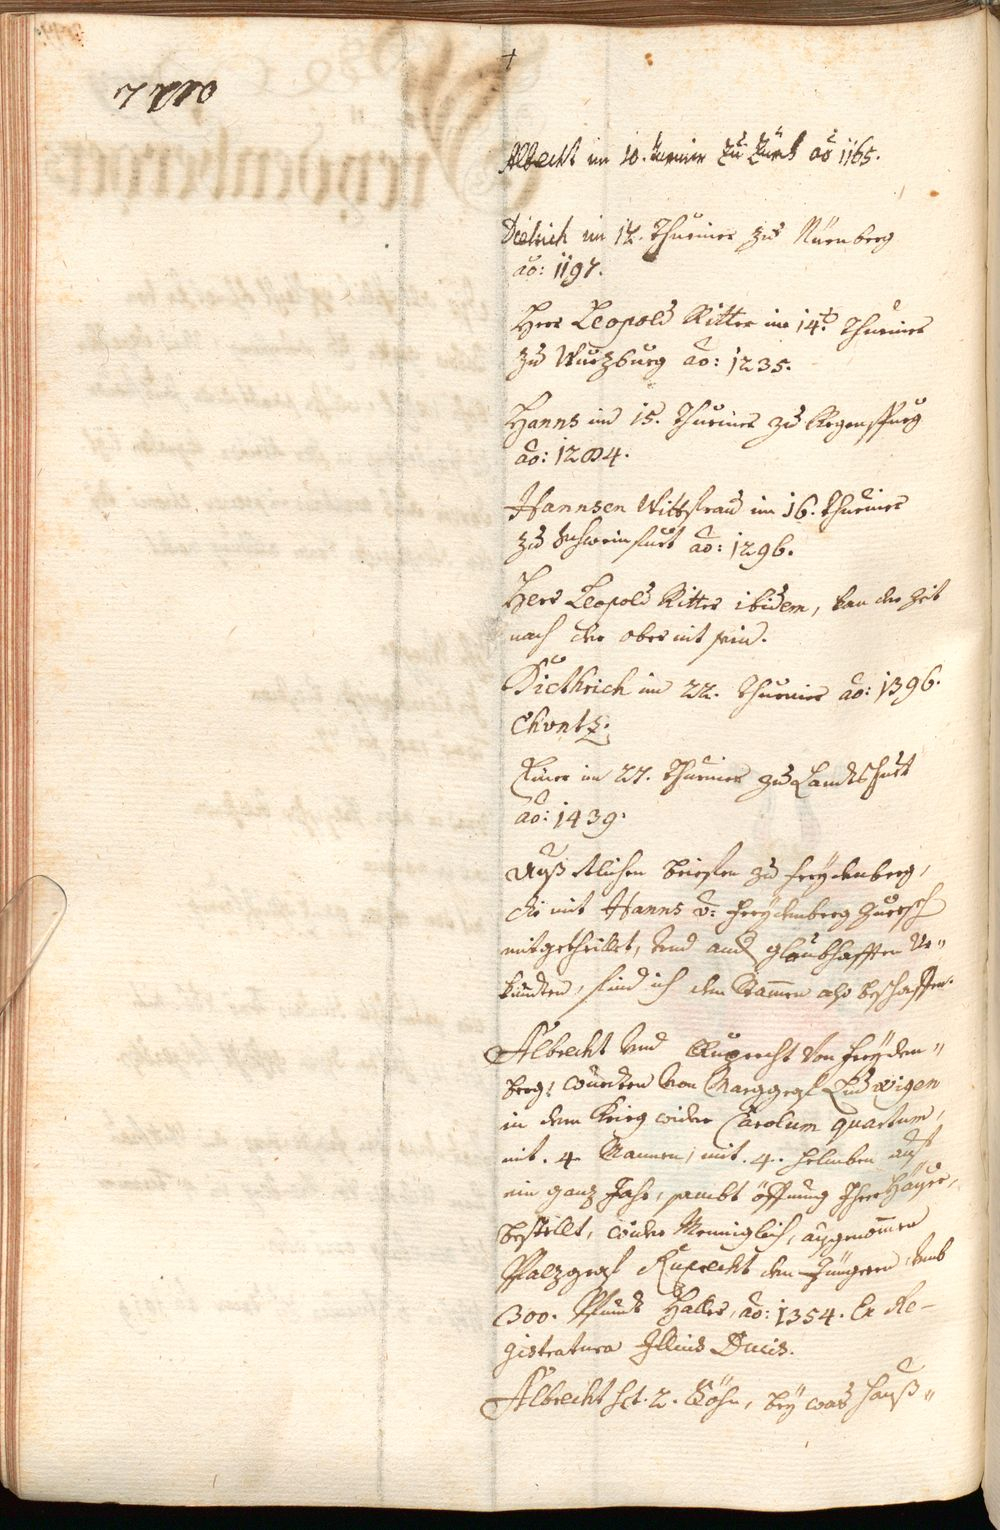 Albrecht im 10. Turnier Zu Zürch aō 1165.
Dietrich im 12. Thurnier zu Nürnberg
aō: 1197.
Herr Leopold Ritter im 14t. Thurnier
zu Wurzburg aō: 1235.
Hanns im 15. Thurnier zu Regenspurg
aō: 1284.
Hannsen Wittfraw im 16. Thurnier
zu Schweinfurt aō: 1296.
Herr Leopold Ritter ibidem, kan der Zeit
nach der ober nit sein.
Diethrich im 22. Thurnier aō: 1396.
Chontz.
Einer im 27. Thurnier zu Landtshuet
aō: 1439.
Auß etlichen brieffen zu Freydenberg,
die mit Hanns v: Freydenberg
mitgetheillet, vnd and glaubhafften Ur„
kundten, find ich den Stammen also beschaffen.
Albrecht vnd Ruprecht von Freyden„
berg, wurden von Marggraf Ludwigen
in dem Krieg wider Carolum quartum,
mit . 4. Mannen, mit . 4. helmben auff
ein ganz Jahr, sambt öffnung Ihrer Häuser,
bestellt, wider Menniglich, ausgenommen
Pfalzgraf Ruprecht den Jüngern, vmb
300. Pfundt Haller, aō: 1354. Ex Re-
gistratura Illius Ducis.
Albrecht hct. 2. Söhn, bey was Hauß„